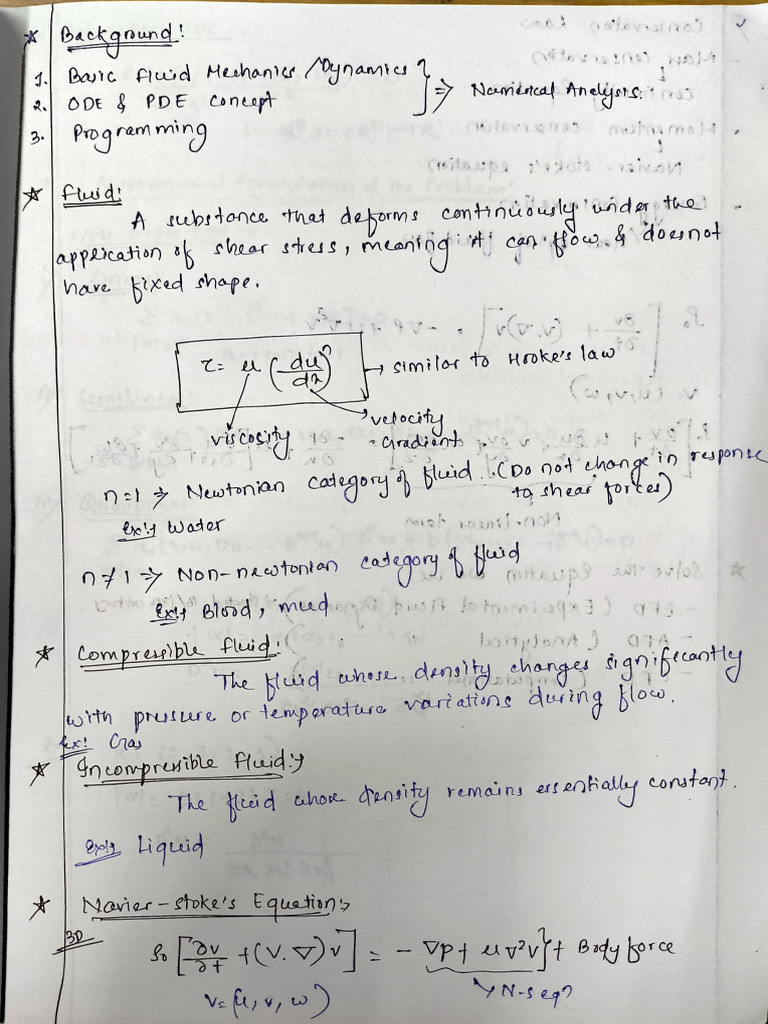 ★ Background:
1. Basic Fluid Mechanics / Dynamics
2. ODE & PDE concept } ⇒ Numerical Analysis.
3. Programming
★ Fluid:
A substance that deforms continuously under the
application of shear stress, meaning it can flow & does not
have fixed shape.
τ = μ (du/dx)^n → similar to Hooke's law
viscosity
velocity
Gradient
n=1 ⇒ Newtonian category of fluid. (Do not change in response
to shear forces)
Ex:→ Water
n≠1 ⇒ Non-newtonian category of fluid
Ex:→ Blood, mud
★ Compressible fluid:
The fluid whose density changes significantly
with pressure or temperature variations during flow.
Ex: Gas
★ Incompressible Fluid:→
The fluid whose density remains essentially constant.
Ex:→ Liquid
★ Navier-stoke's Equation:→
3D
[∂v/∂t + (V.∇)v] = - ∇P + μ∇²v} + Body force
V=(u, v, w)
N-S eqn